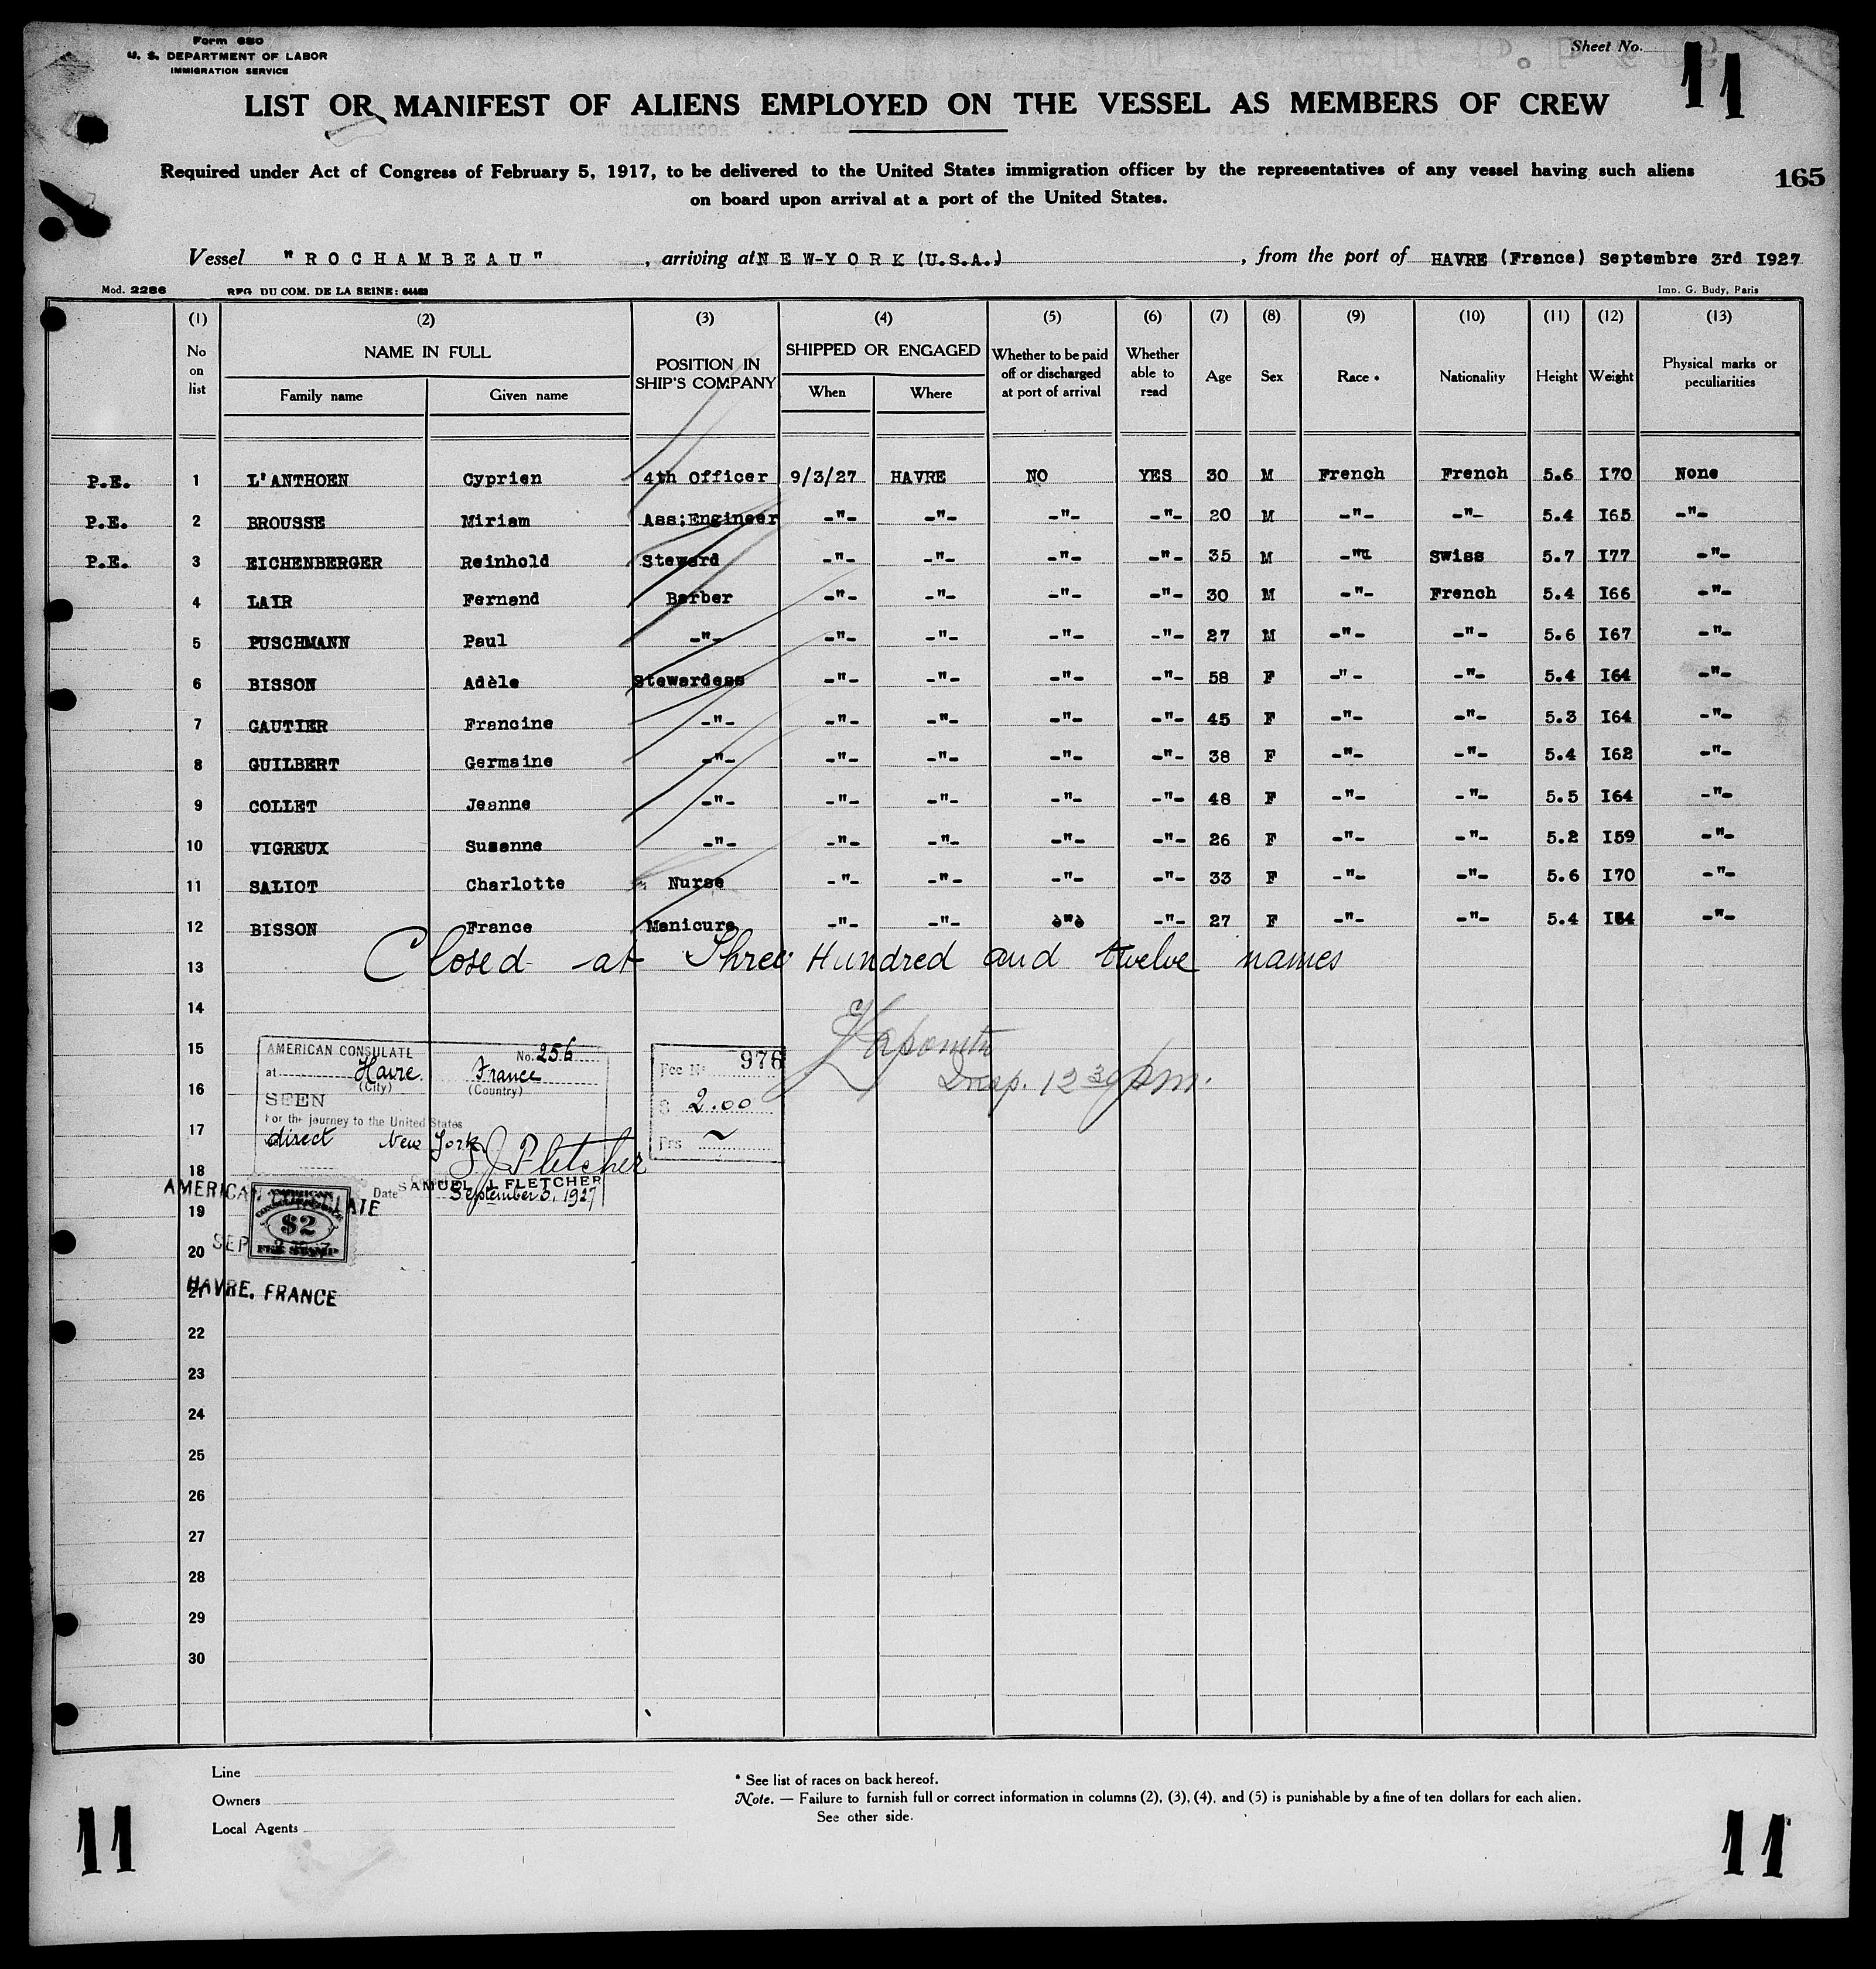 Form 680
U. S. DEPARTMENT OF LABOR
IMMIGRATION SERVICE
Sheet No. 11
LIST OR MANIFEST OF ALIENS EMPLOYED ON THE VESSEL AS MEMBERS OF CREW
Required under Act of Congress of February 5, 1917, to be delivered to the United States immigration officer by the representatives of any vessel having such aliens
on board upon arrival at a port of the United States.
165
Vessel "ROCHAMBEAU", arriving at NEW-YORK (U.S.A.), from the port of HAVRE (France) Septembre 3rd I927
Mod. 2286 REG. DU COM. DE LA SEINE: Imp. G. Budy, Paris
(1) (2) (3) (4) (5) (6) (7) (8) (9) (10) (11) (12) (13)
No on list NAME IN FULL Family name Given name POSITION IN SHIP'S COMPANY SHIPPED OR ENGAGED When Where Whether to be paid off or discharged at port of arrival Whether able to read Age Sex Race * Nationality Height Weight Physical marks or peculiarities
P.E. 1 L'ANTHOEN Cyprien 4th Officer 9/3/27 HAVRE NO YES 30 M French French 5.6 I70 None
P.E. 2 BROUSSE Miriam Ass:Engineer -"- -"- -"- -"- 20 M -"- -"- 5.4 I65 -"-
P.E. 3 EICHENBERGER Reinhold Steward -"- -"- -"- -"- 35 M -"- Swiss 5.7 I77 -"-
4 LAIR Fernand Barber -"- -"- -"- -"- 30 M -"- French 5.4 I66 -"-
5 PUSCHMANN Paul -"- -"- -"- -"- -"- 27 M -"- -"- 5.6 I67 -"-
6 BISSON Adèle Stewardess -"- -"- -"- -"- 58 F -"- -"- 5.4 I64 -"-
7 GAUTIER Francine -"- -"- -"- -"- -"- 45 F -"- -"- 5.3 I64 -"-
8 GUILBERT Germaine -"- -"- -"- -"- -"- 38 F -"- -"- 5.4 I62 -"-
9 COLLET Jeanne -"- -"- -"- -"- -"- 48 F -"- -"- 5.5 I64 -"-
10 VIGREUX Suzanne -"- -"- -"- -"- -"- 26 F -"- -"- 5.2 I59 -"-
11 SALIOT Charlotte Nurse -"- -"- -"- -"- 33 F -"- -"- 5.6 I70 -"-
12 BISSON France Manicure -"- -"- -"- -"- 27 F -"- -"- 5.4 I64 -"-
13 Closed at Three Hundred and twelve names
14
15 AMERICAN CONSULATE No. 256
at Havre France
(City) (Country)
Fee No 976
Insp. 12 30 pm.
16 SEEN
$ 2.00
For the journey to the United States
17 direct New York
Frs ~
S J Fletcher
18
SAMUEL J. FLETCHER
Date September 3, 1927
AMERICAN CONSULATE
19
AMERICAN
$2
FEE STAMP
20 SEP
21
HAVRE, FRANCE
22
23
24
25
26
27
28
29
30
Line
Owners
Local Agents
* See list of races on back hereof.
Note. — Failure to furnish full or correct information in columns (2), (3), (4), and (5) is punishable by a fine of ten dollars for each alien.
See other side.
11 11